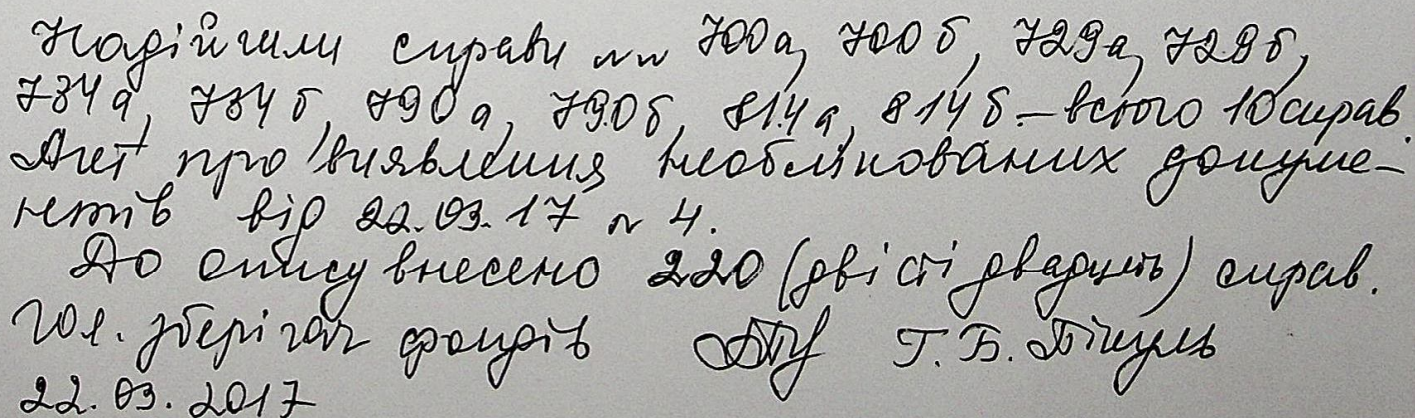 Надійшли справи №№ 700а, 700б, 729а, 729б,
734а, 734б, 790а, 790б, 814а, 814б – всього 10 справ.
Акт про виявлення необлікованих докуме-
нтів від 22.03.17 № 4.
До опису внесено 220 (двісті двадцять) справ.
Гол. зберігач фондів Г. Б. Пікуль
22.03.2017